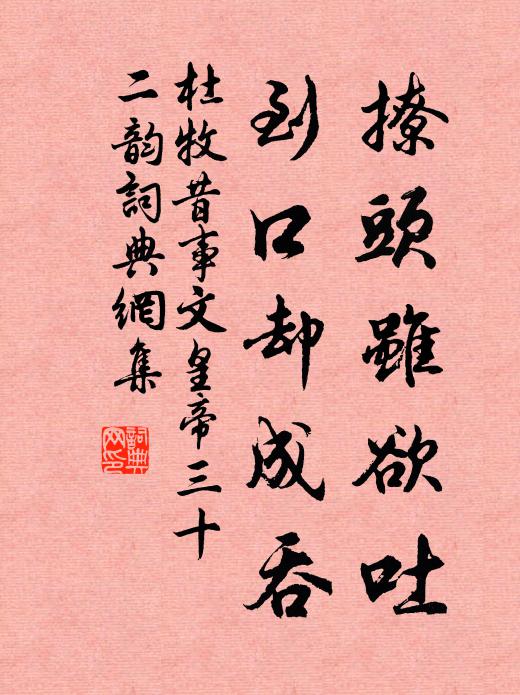 撩頭雖欲吐
到口却成吞
杜牧昔事文皇帝三十
二韵詞典網集
詞典網印